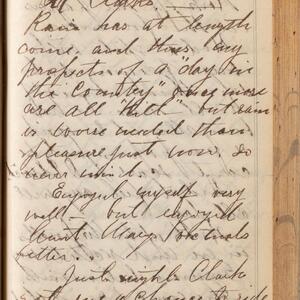 Rain has at length
come and thus my
prospects of a "day in
the Country" once more
are all "kill" but rain
is worse needed than
pleasure just now so
never mind.
Enjoyed myself very
well - but enjoyed
Aunt Mary
better.
Just night Clark